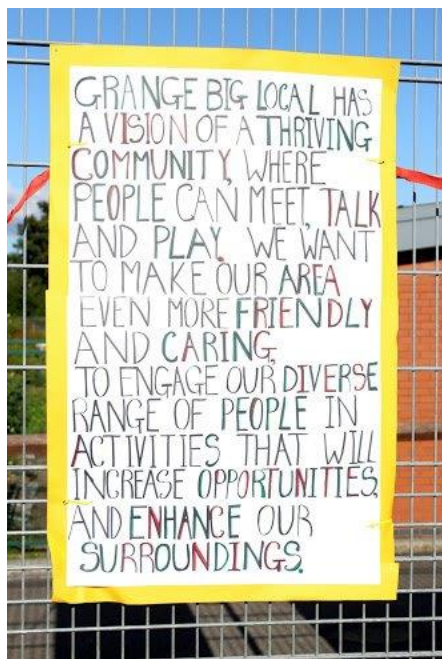 GRANGE BIG LOCAL HAS
A VISION OF A THRIVING
COMMUNITY, WHERE
PEOPLE CAN MEET, TALK
AND PLAY. WE WANT
TO MAKE OUR AREA
EVEN MORE FRIENDLY
AND CARING,
TO ENGAGE OUR DIVERSE
RANGE OF PEOPLE IN
ACTIVITIES THAT WILL
INCREASE OPPORTUNITIES,
AND ENHANCE OUR
SURROUNDINGS.